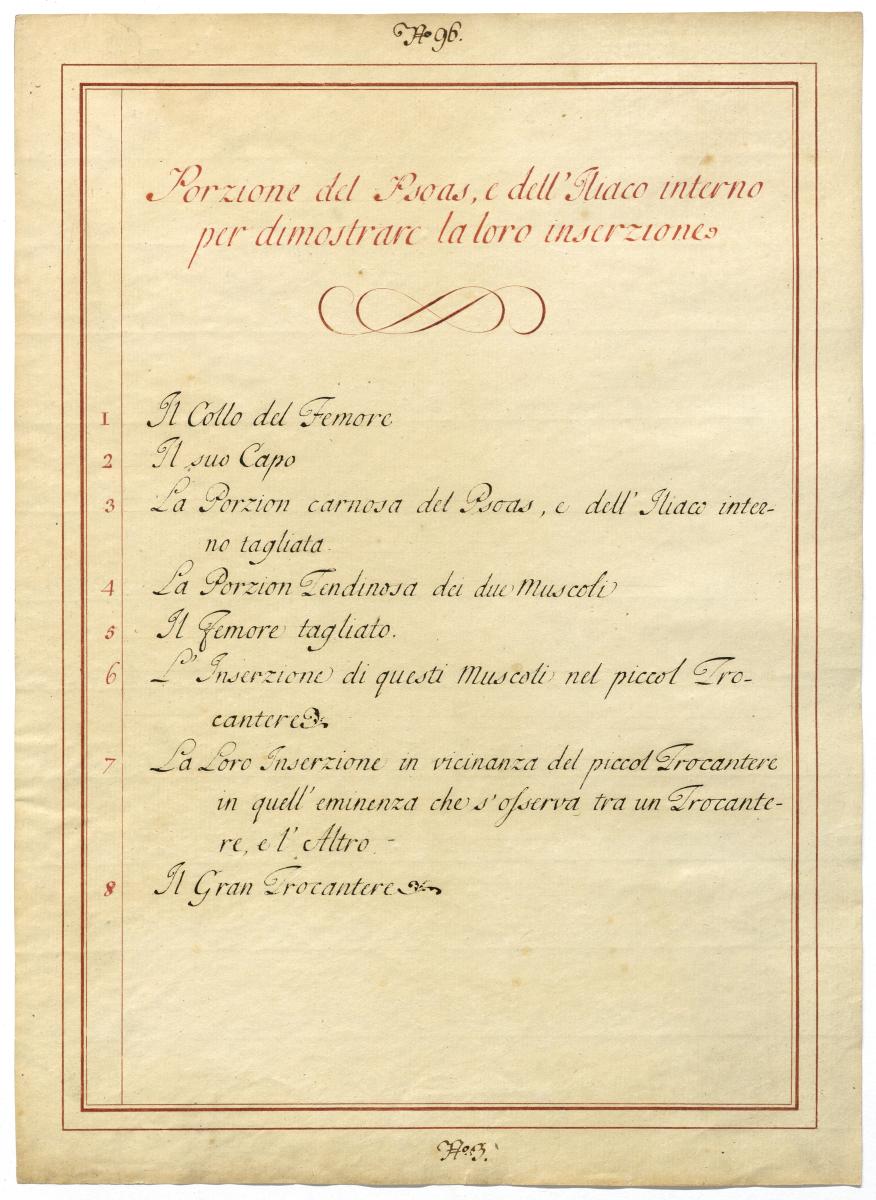 No 96.
Porzione del Psoas, e dell'Iliaco interno
per dimostrare la loro inserzione
1 Il Collo del Femore
2 Il suo Capo
3 La Porzion carnosa del Psoas, e dell' Iliaco inter-
no tagliata.
4 La Porzion Tendinosa dei due Muscoli
5 Il Femore tagliato.
6 L'Inserzione di questi Muscoli nel piccol Tro-
cantere
7 La Loro Inserzione in vicinanza del piccol Trocantere
in quell' eminenza che s'ofserva tra un Trocante-
re, e l' Altro. -
8 Il Gran Trocantere
No 3.